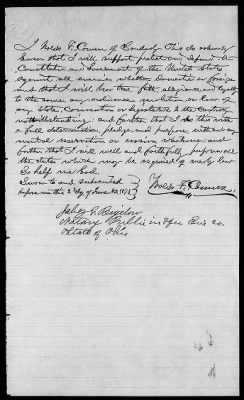 I, Noah F. Comeen of Sandusky Ohio do solemnly
Swear that I will support, protect and defend the
Constitution and Government of the United States
against all enemies whether Domestic or foreign
and that I will bear true faith, allegiance, and loyalty
to the same, any ordinance, resolution or law of
any State, Convention or Legislature to the contrary
notwithstanding. and further, that I do this with
a full determination, pledge, and purpose, without any
mental reservation or evasion whatsoever. and
further that I will well and faithfully perform all
the duties which may be required of me by law
So help me God.
Sworn to and subscribed
before me this 2 day of June AD
Notary Public in & for Erie Co.
State of Ohio